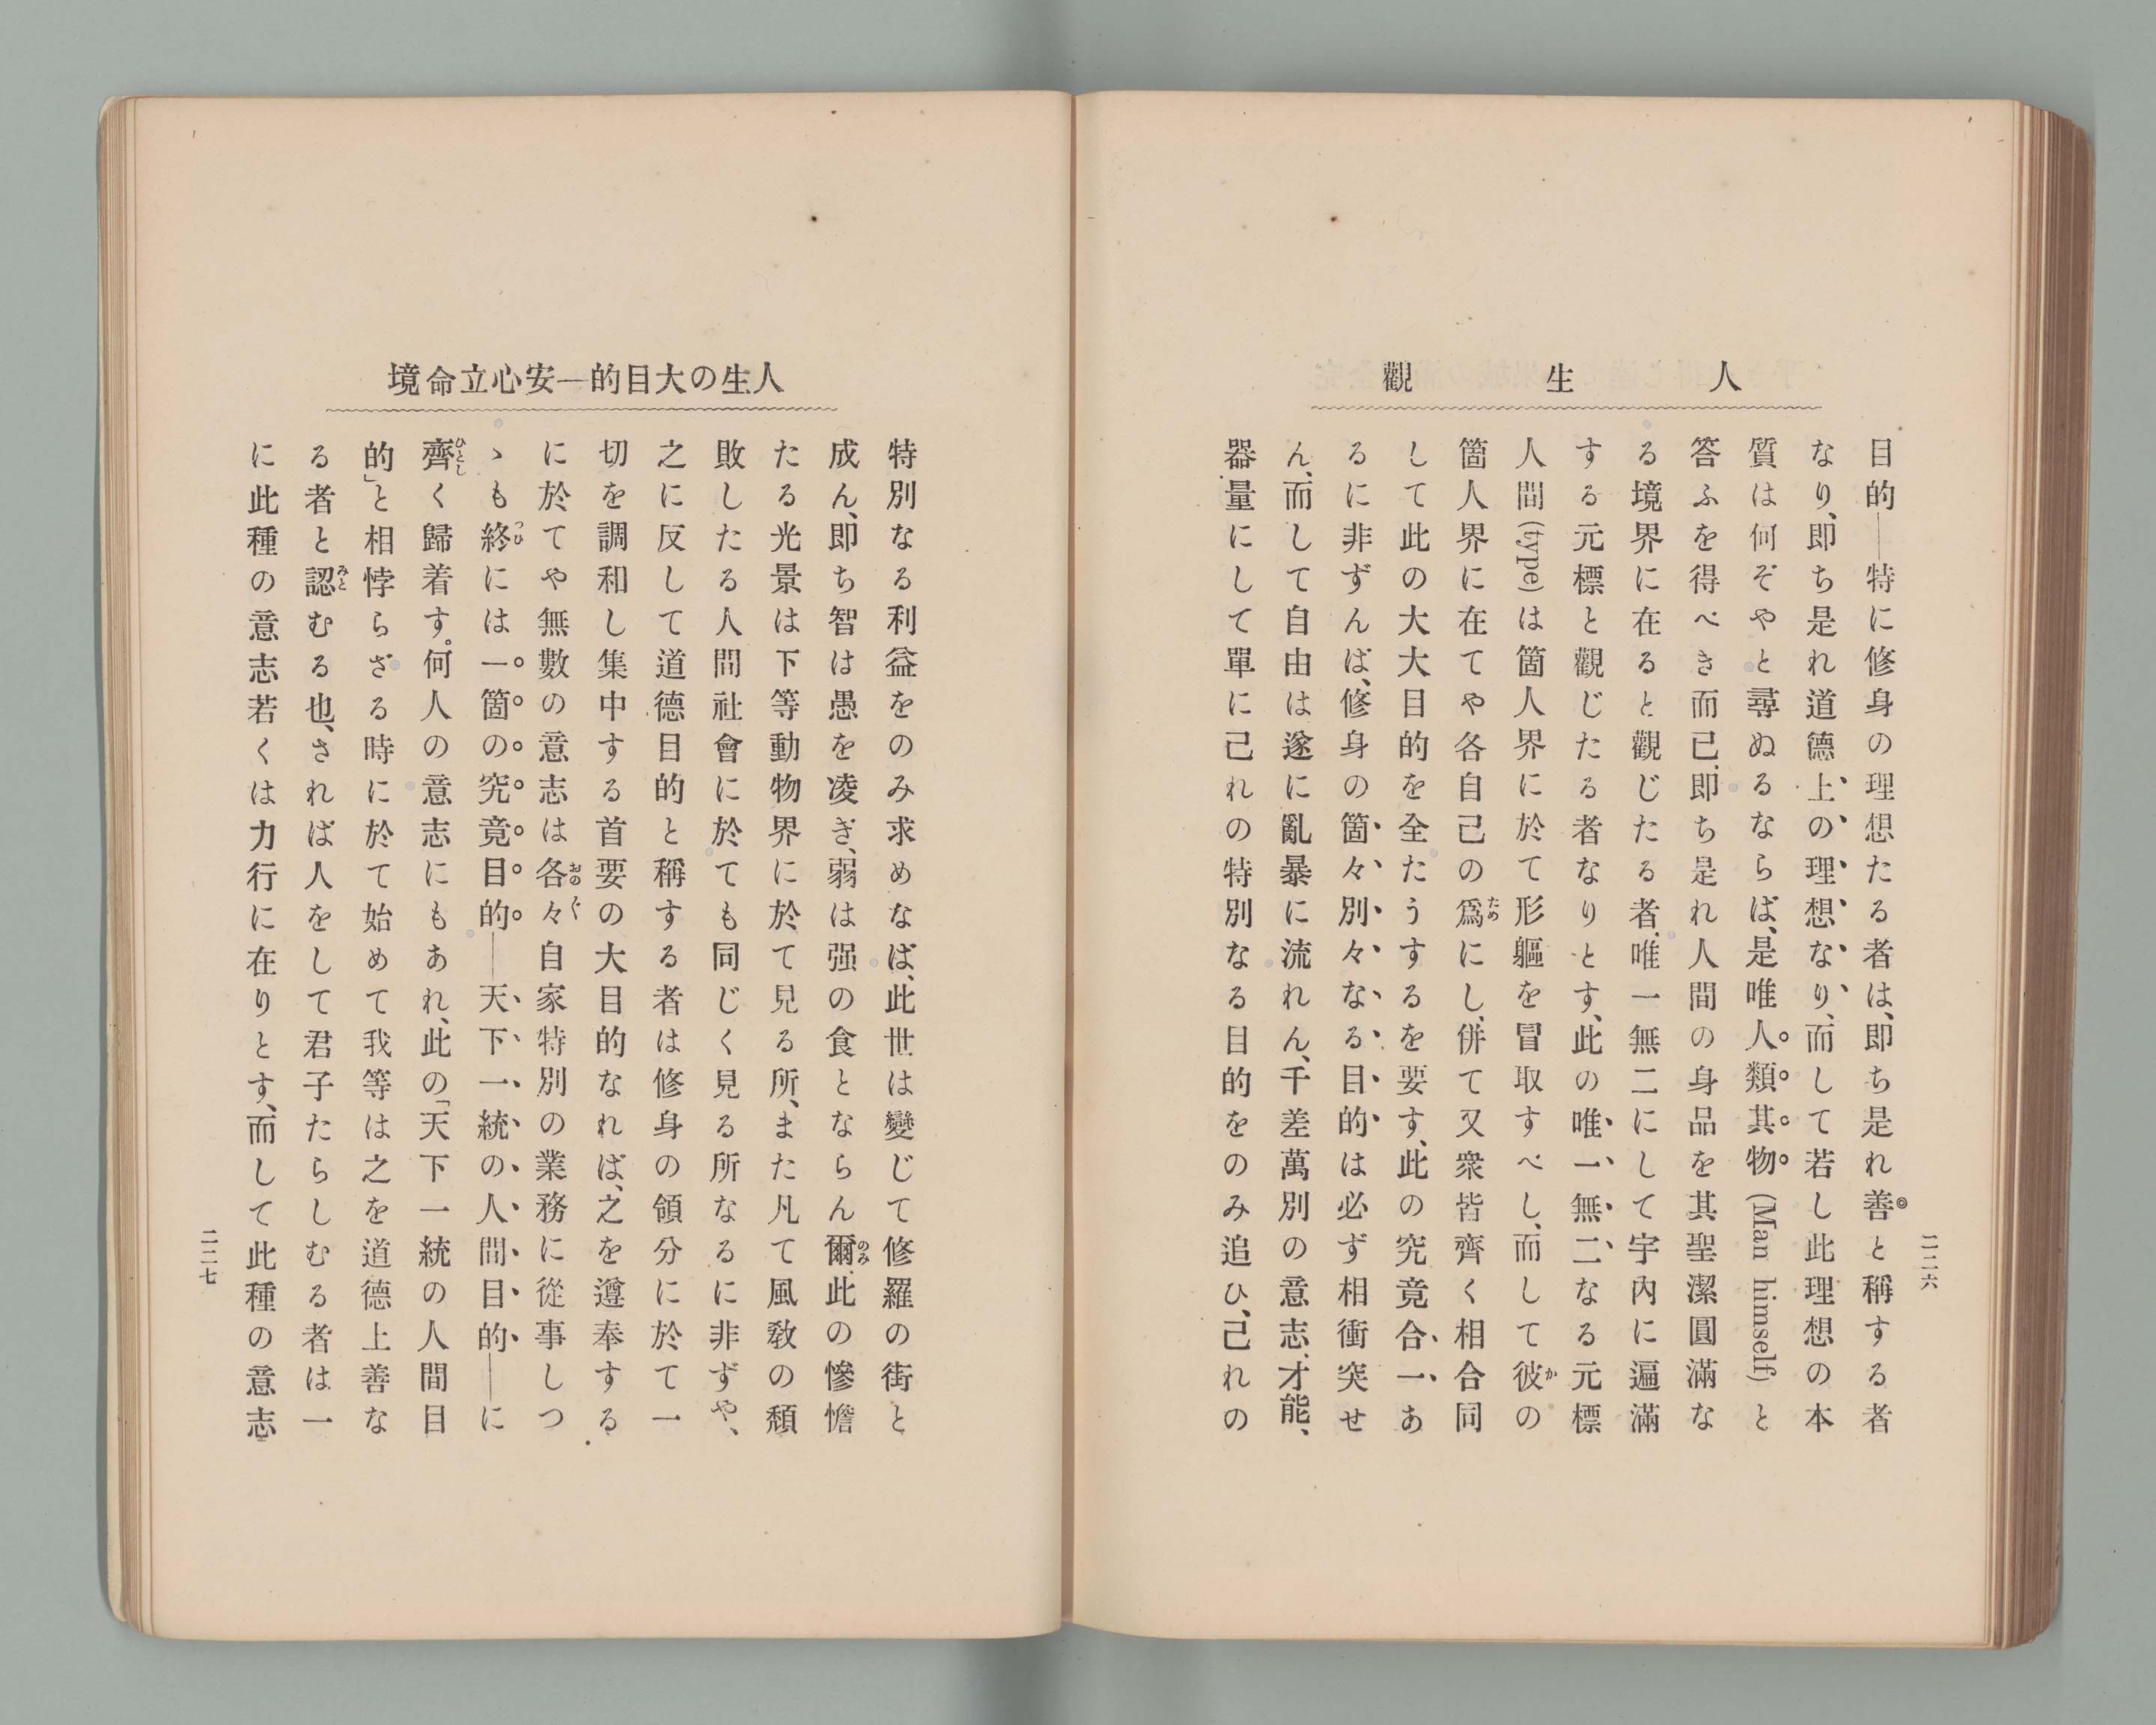 人生觀
二二六
目的――特に修身の理想たる者は、即ち是れ善と稱する者
なり、即ち是れ道德上の理想なり、而して若し此理想の本
質は何ぞやと尋ぬるならば、是唯人類其物 (Man himself) と
答ふを得べき而已、即ち是れ人間の身品を其聖潔圓滿な
る境界に在ると觀じたる者、唯一無二にして宇內に遍滿
する元標と觀じたる者なりとす、此の唯一無二なる元標
人間 (type) は箇人界に於て形軀を冒取すべし、而して彼の
箇人界に在てや各自己の爲にし、併て又衆皆齊く相合同
して此の大大目的を全たうするを要す、此の究竟合一あ
るに非ずんば、修身の箇々別々なる目的は必ず相衝突せ
ん、而して自由は遂に亂暴に流れん、千差萬別の意志、才能、
器量にして單に己れの特別なる目的をのみ追ひ、己れの
人生の大目的―安心立命境
特別なる利益をのみ求めなば、此世は變じて修羅の街と
成ん、即ち智は愚を凌ぎ、弱は强の食とならん爾、此の慘憺
たる光景は下等動物界に於て見る所、また凡て風敎の頽
敗したる人間社會に於ても同じく見る所なるに非ずや、
之に反して道德目的と稱する者は修身の領分に於て一
切を調和し集中する首要の大目的なれば、之を遵奉する
に於てや無數の意志は各々自家特別の業務に從事しつ
ゝも終には一箇の究竟目的――天下一統の人間目的――に
齊く歸着す。何人の意志にもあれ、此の「天下一統の人間目
的」と相悖らざる時に於て始めて我等は之を道德上善な
る者と認むる也、されば人をして君子たらしむる者は一
に此種の意志若くは力行に在りとす、而して此種の意志
二二七